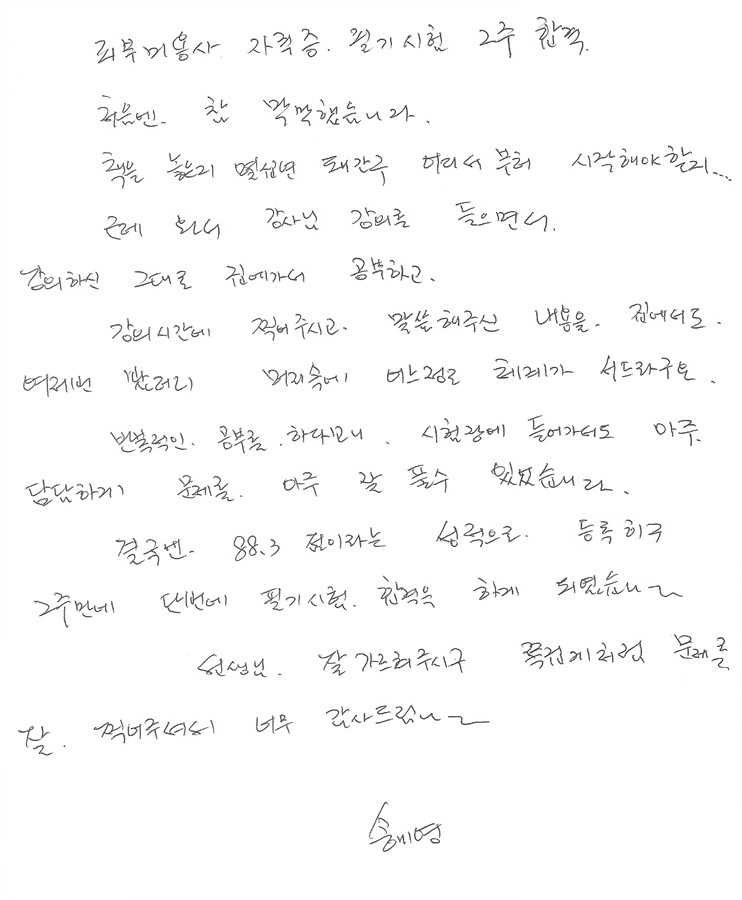 피부미용사 자격증. 필기시험 2주 합격.
처음엔. 참 막막했습니다.
책을 놓은지 몇십년 돼간구 어디서부터 시작해야할지...
근데 와서 강사님 강의를 들으면서.
강의하신 그대로 집에가서 공부하고.
강의시간에 찍어주시고. 말씀해주신 내용을. 집에서도.
여러번 봤더니 머리속에 어느정도 체계가 서드라구요.
반복적인. 공부를. 하다보니. 시험장에 들어가서도 아주.
담담하게 문제를. 아주 잘 풀수 있었습니다.
결국엔. 88.3 점이라는 성적으로. 등록하구
2주만에 단번에 필기시험. 합격을 하게 되였습니~
선생님. 잘 가르쳐주시구 쪽집게처럼 문제를
잘. 찍어주셔서 너무 감사드립니~
송혜영